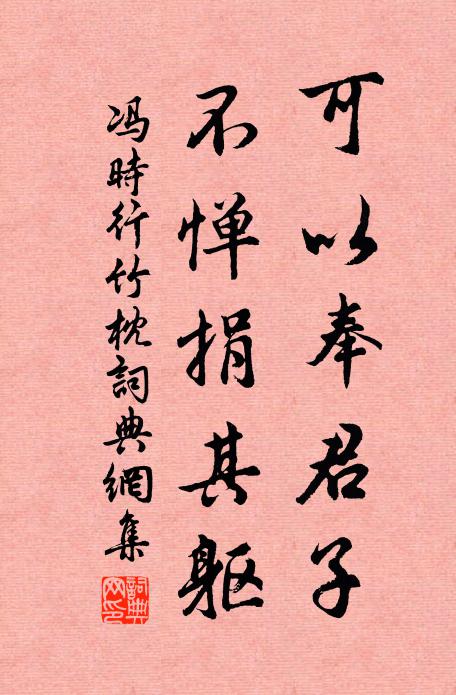 可以奉君子
不惮捐其躯
冯時行竹枕詞典網集
詞典網印